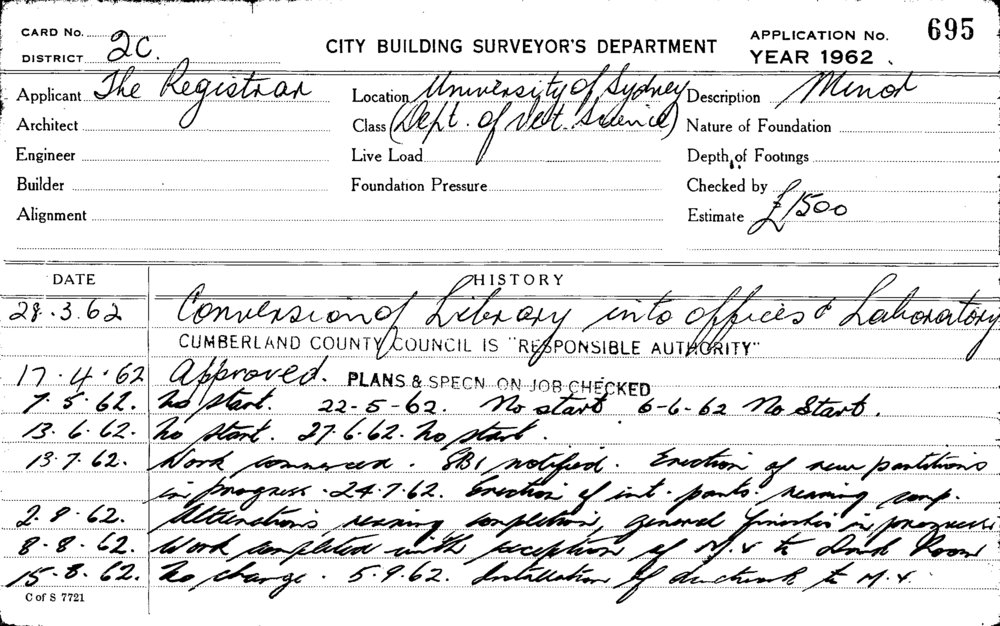 CARD No.
DISTRICT 2C.
CITY BUILDING SURVEYOR'S DEPARTMENT
APPLICATION No. 695
YEAR 1962
Applicant The Registrar Location University of Sydney Description Minor
Architect Class (Dept. of Vet. Science) Nature of Foundation
Engineer Live Load Depth of Footings
Builder Foundation Pressure Checked by
Alignment Estimate £1500
DATE HISTORY
28.3.62 Conversion of Library into offices & Laboratory
CUMBERLAND COUNTY COUNCIL IS "RESPONSIBLE AUTHORITY"
17.4.62 Approved. PLANS & SPECN ON JOB CHECKED
7.5.62. No start. 22-5-62. No start 6-6-62 No Start.
13.6.62. No start. 27.6.62. No start.
13.7.62. Work commenced. SBI notified. Erection of new partitions
in progress. 24.7.62. Erection of int. parts. nearing comp.
2.8.62. Alterations nearing completion, general finishes in progress
8.8.62. Work completed with exception of M.V to Room
15.8.62. No change. 5.9.62. Installation of ductwork to M.V.
C of S 7721